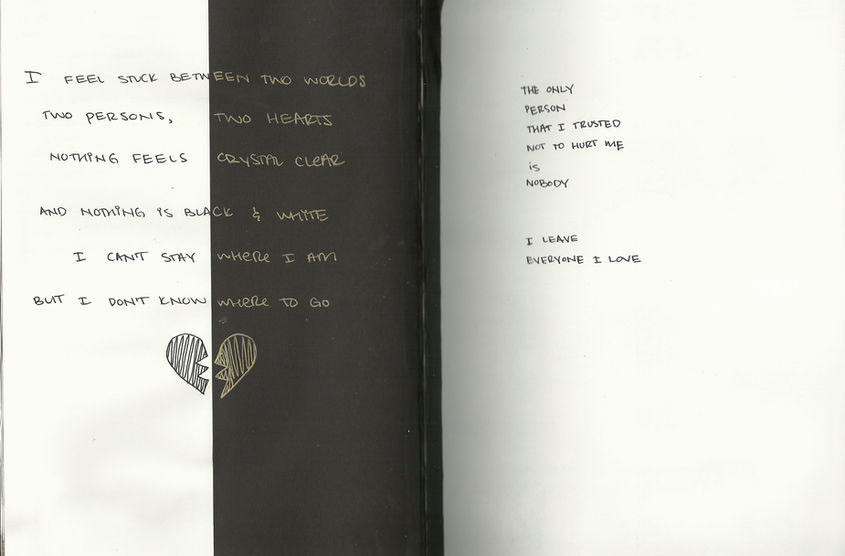 I FEEL STUCK BETWEEN TWO WORLDS
TWO PERSONS, TWO HEARTS
NOTHING FEELS CRYSTAL CLEAR
AND NOTHING IS BLACK & WHITE
I CAN'T STAY WHERE I AM
BUT I DON'T KNOW WHERE TO GO
THE ONLY
PERSON
THAT I TRUSTED
NOT TO HURT ME
IS
NOBODY
I LEAVE
EVERYONE I LOVE